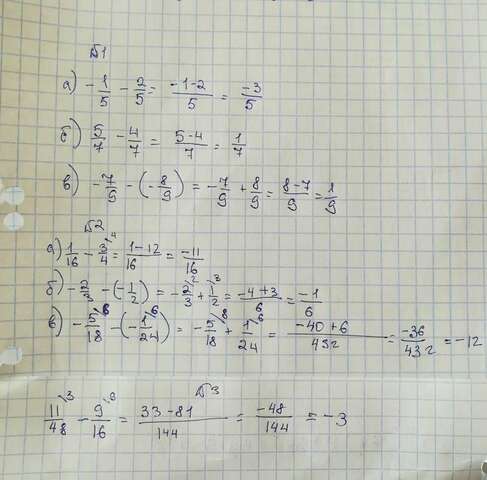 №1
а) -1/5 - 2/5 = -1-2/5 = -3/5
б) 5/7 - 4/7 = 5-4/7 = 1/7
в) -7/9 - (-8/9) = -7/9 + 8/9 = 8-7/9 = 1/9
№2
а) 1/16 - 3/4 \4 = 1-12/16 = -11/16
б) -2/3 - (-1/2) = -2/3 \2 + 1/2 \3 = -4+3/6 = -1/6
в) -5/18 \8 - (-1/24 \6) = -5/18 \8 + 1/24 \6 = -40+6/432 = -36/432 = -12
№3
11/48 \3 - 9/16 \9 = 33-81/144 = -48/144 = -3